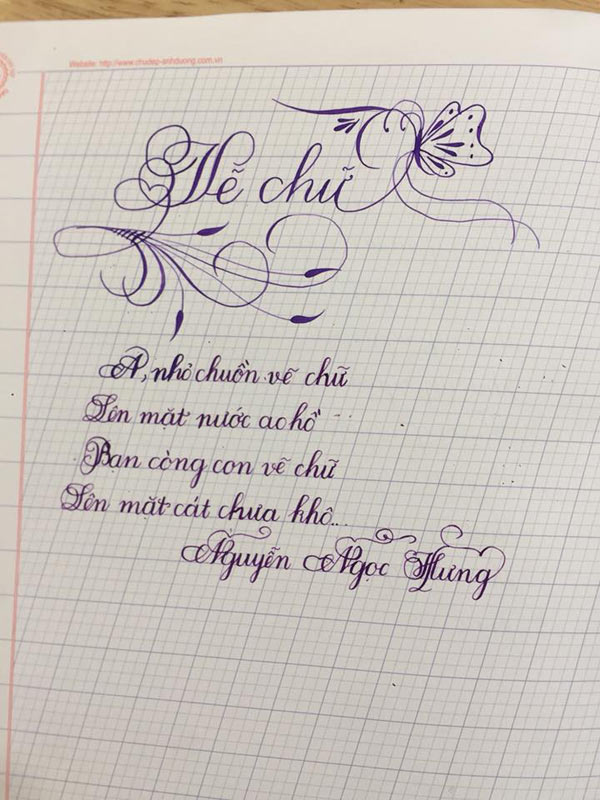 Website: http://www.chudep-anhduong.com.vn
Vẽ chữ
A, nhỏ chuồn vẽ chữ
Lên mặt nước ao hồ
Bạn còng con vẽ chữ
Lên mặt cát chưa khô...
Nguyễn Ngọc Hưng